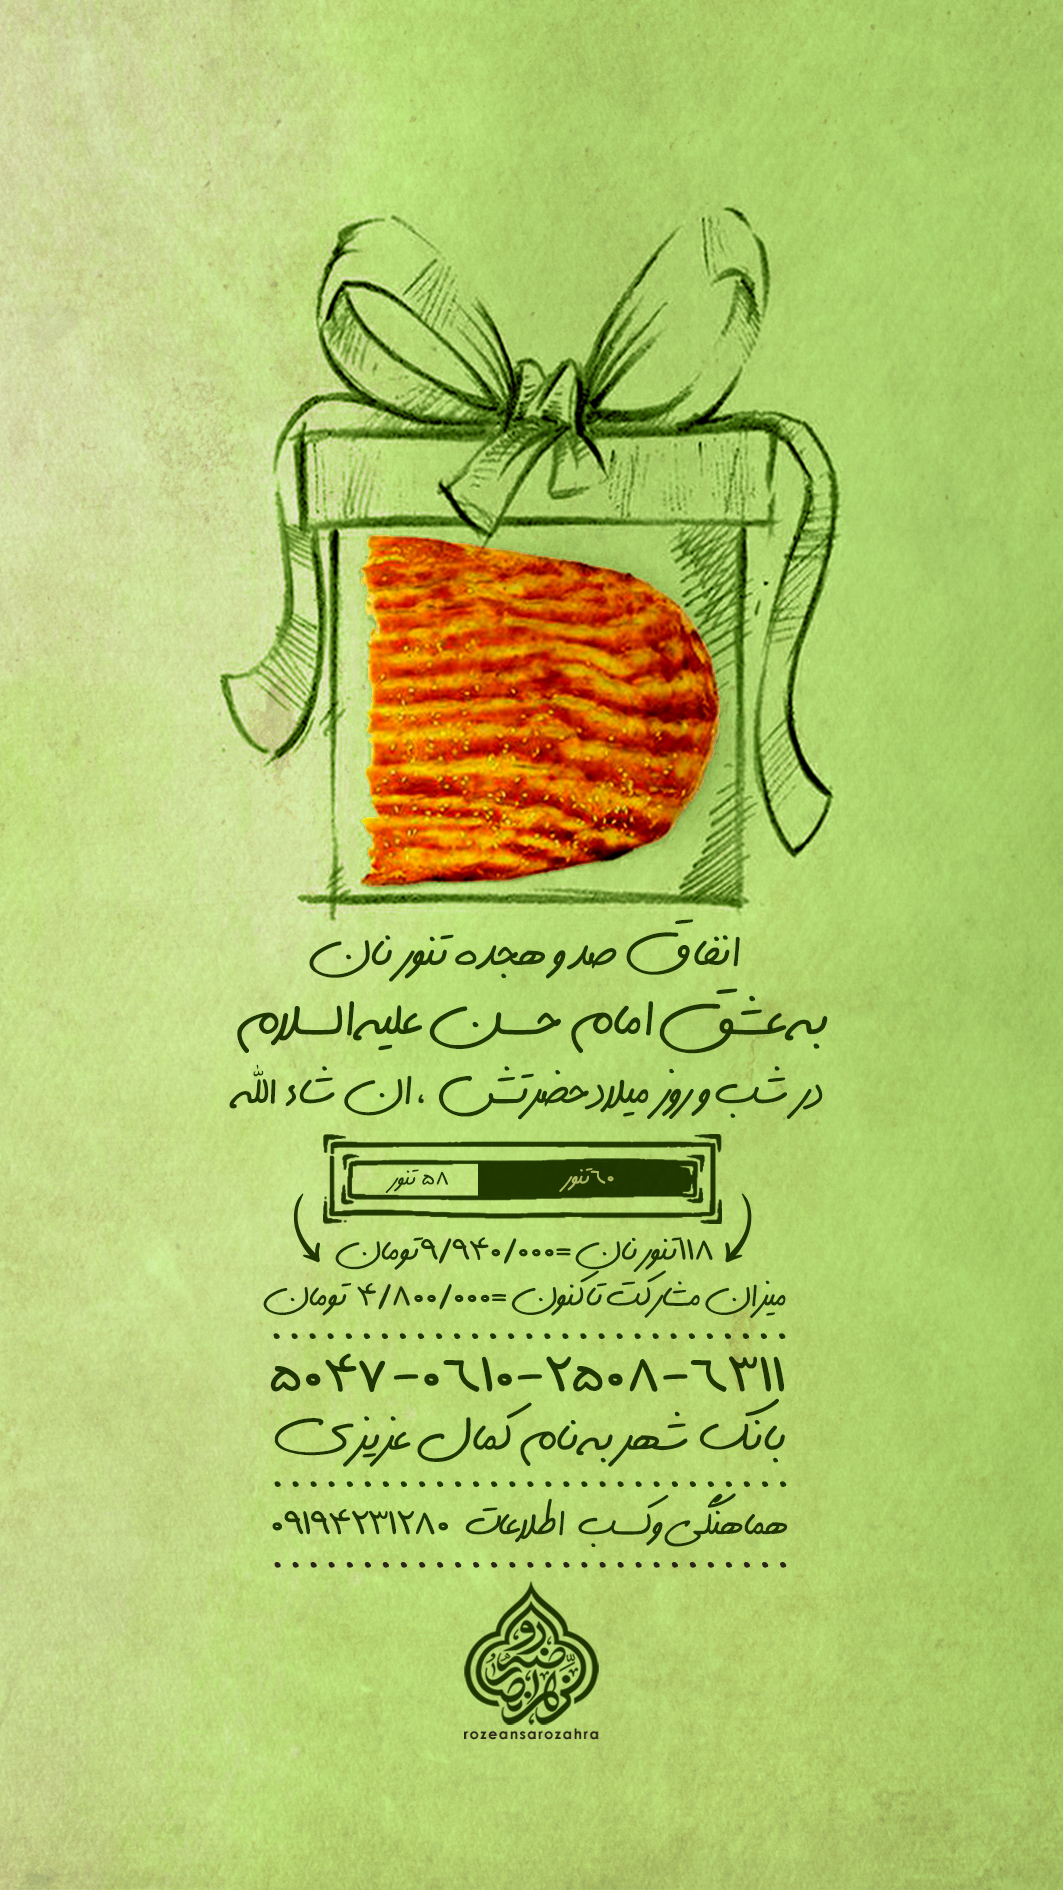 انفاق صد و هجده تنور نان
به عشق امام حسن علیه السلام
در شب و روز میلاد حضرتش ، ان شاء الله
۶۰ تنور
۵۸ تنور
۱۱۸ تنور نان = ۹/۹۴۰/۰۰۰ تومان
میزان مشارکت تاکنون = ۴/۸۰۰/۰۰۰ تومان
۵۰۴۷-۰۶۱۰-۲۵۰۸-۶۳۱۱
بانک شهر به نام کمال عزیزی
هماهنگی و کسب اطلاعات ۰۹۱۹۴۲۳۱۲۸۰
rozeansarozahra